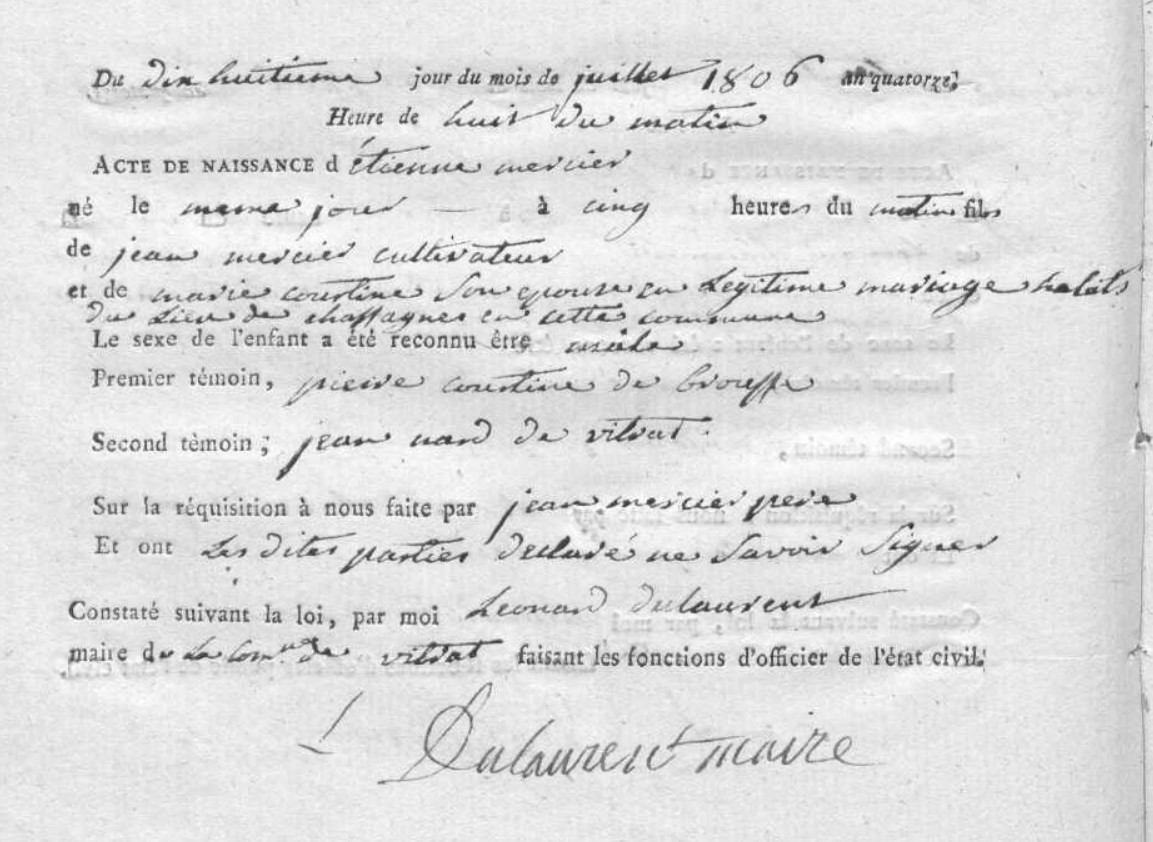 Du dix huitieme jour du mois de juillet 1806 an quatorze;
Heure de huit du matin
ACTE DE NAISSANCE d étienne mercier
né le meme jour — à cinq heures du matin fils
de jean mercier cultivateur
et de marie courtine Son epouse en Legitime mariage
du Lieu de chassagnes en cette commune
Le sexe de l'enfant a été reconnu être male
Premier témoin, pierre courtine de
Second tèmoin; jean nard de vitrat
Sur la réquisition à nous faite par jean mercier pere
Et ont Les dites parties declaré ne Savoir Signer
Constaté suivant la loi, par moi Leonard dulaurent
maire de La Com^ne de vitrat faisant les fonctions d'officier de l'état civil.
L Dulaurent maire